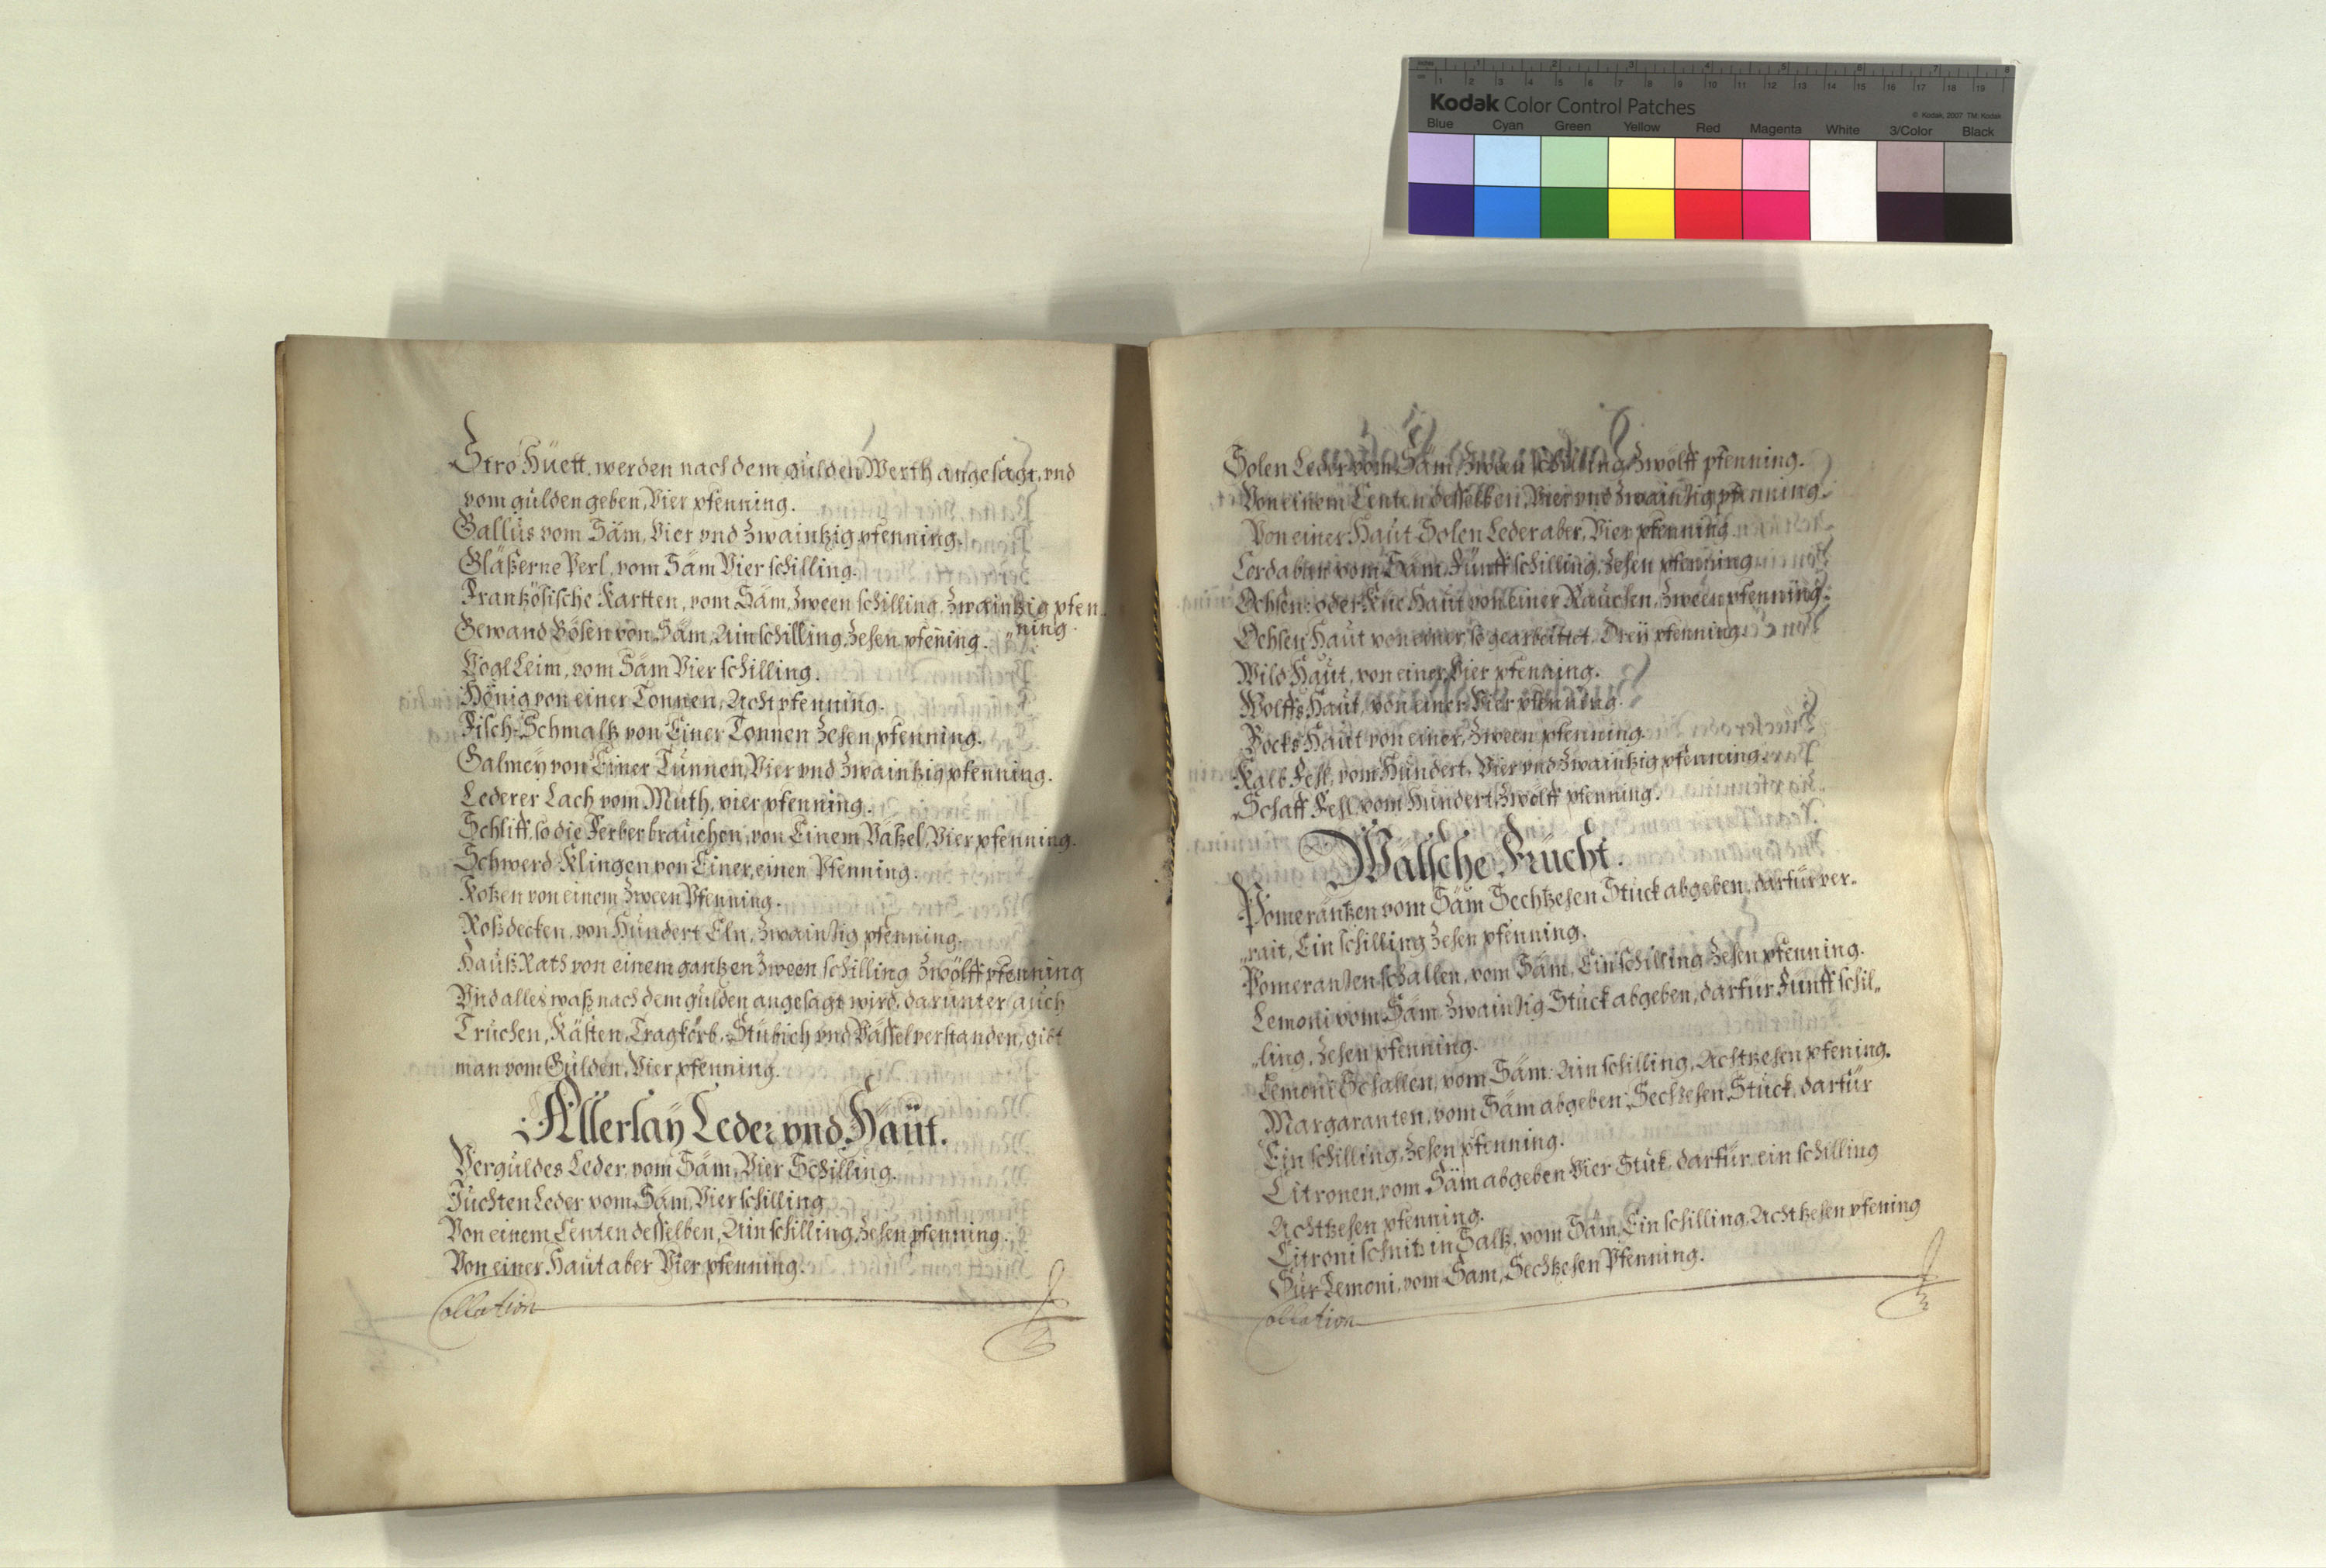 Kodak Color Control Patches
© Kodak, 2007 TM: Kodak
Blue Cyan Green Yellow Red Magenta White 3/Color Black
Stro Hüett, werden nach dem gulden Werth angesagt, vnd
vom gulden geben, Vier pfenning.
Gallus vom Säm, Vier vnd Zwaintzig pfenning.
Gläßerne Perl, vom Säm Vier schilling.
Frantzösische Kartten, vom Säm, Zween schilling, Zwaintzig pfen-
ning.
Gewand Bösen von Säm, Ain schilling, Zehen pfening.
Vogl Leim, vom Säm Vier schilling.
Hönig von einer Tonnen, Acht pfenning.
Fisch-Schmaltz von Einer Tonnen Zehen pfenning.
Galmeÿ von Einer Tunnen, Vier vnd Zwaintzig pfenning.
Lederer Lach vom Muth, vier pfenning.
Schliff, so die Ferber brauchen, von Einem Väßel, Vier pfenning.
Schwerd Klingen von Einer, einen Pfenning.
Kotzen von einem Zween Pfenning.
Roßdecken, von Hundert Eln, Zwaintzig pfenning.
Hauß Rath von einem gantzen Zween schilling Zwölff pfenning
Vnd alles waß nach dem gulden angesagt wird, darunter auch
Truchen, Kästen, Tragkörb, Stübich vnd Vässel verstanden, gibt
man vom Gulden, Vier pfenning.
Allerlaÿ Leder vnd Häut.
Verguldes Leder, vom Säm, Vier Schilling.
Juchten Leder vom Säm, Vier schilling
Von einem Centen desselben, Ain schilling, Zehen pfenning.
Von einer Haut aber Vier pfenning.
Collation
Solen Leder vom Säm, Zween schilling, Zwölff pfenning.
Von einem Centen desselben, Vier vnd Zwaintzig pfenning.
Von einer Haut Solen Leder aber, Vier pfenning
Cordaban vom Säm, Fünff schilling, Zehen pfenning
Ochsen- oder Küe Haut von einer Rauchen, Zween pfenning.
Ochsen Haut von einer, so gearbeittet, Dreÿ pfenning.
Wild Haut, von einer, Vier pfenning.
Wolffs Haut, von einer Vier pfenning.
Bocks Haut von einer, Zween pfenning.
Kalb Fehl, vom Hundert, Vier vnd Zwaintzig pfenning.
Schaff Fehl, vom Hundert, Zwölff pfenning.
Wälsche Frücht.
Pomerantzen vom Säm Sechtzehen Stuck abgeben, darfür ver-
rait, Ein schilling Zehen pfenning.
Pomerantzen schallen, vom Säm, Ein schilling Zehen pfenning.
Lemoni vom Säm Zwaintzig Stuck abgeben, darfür Fünff schil-
ling, Zehen pfenning.
Lemoni Schallen, vom Säm: Ain schilling, Achtzehen pfening.
Margaranten, vom Säm abgeben, Sechzehen Stuck, darfür
Ein schilling, Zehen pfenning.
Citronen, vom Säm abgeben Vier Stuk, darfür ein schilling
Achtzehen pfenning.
Citroni schnitz in Saltz, vom Säm, Ein schilling, Achtzehen pfening
Sur Lemoni, vom Sam, Sechtzehen Pfenning.
Collation